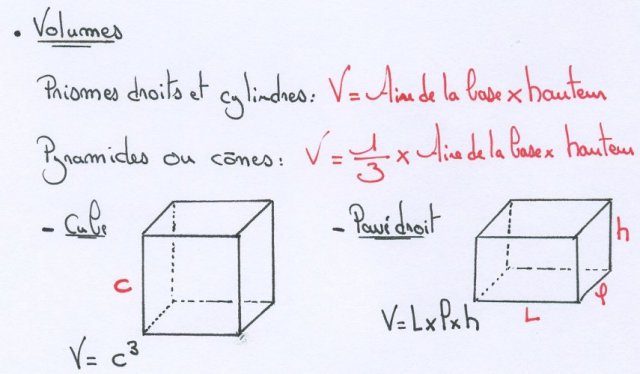 • Volumes
Prismes droits et cylindres: V = Aire de la base × hauteur
Pyramides ou cônes: V = 1/3 × Aire de la base × hauteur
- Cube
c
V = c³
- Pavé droit
h
l
L
V = L × l × h